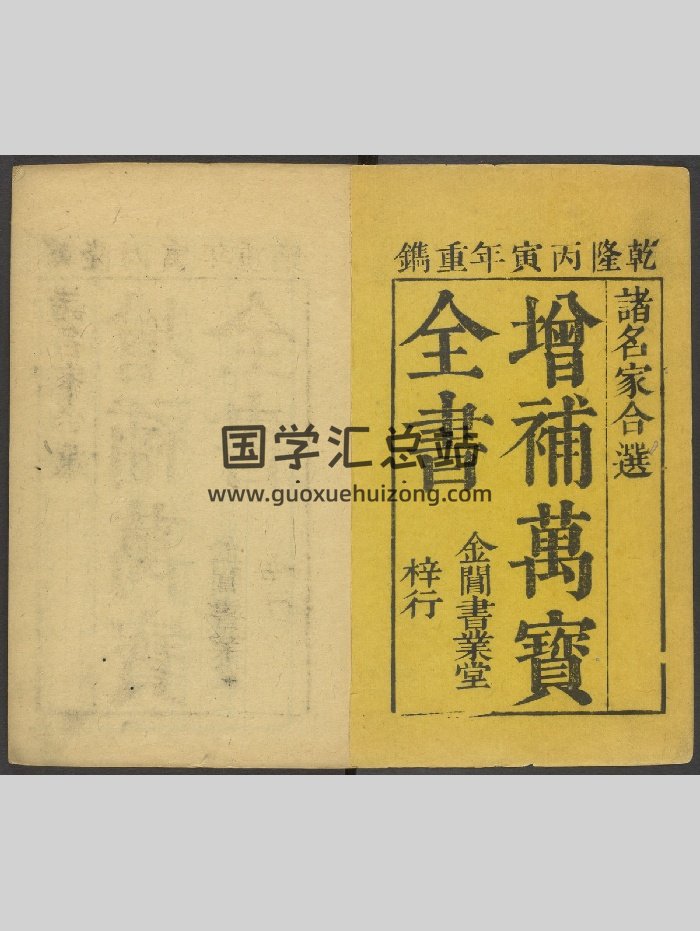 乾隆丙寅年重鐫
諸名家合選
增補萬寳
全書
金閶書業堂
梓行
国学汇总站
www.guoxuehuizong.com